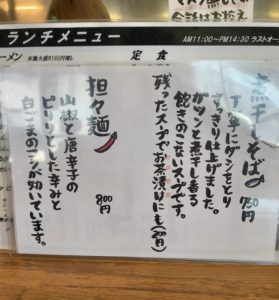 ランチメニュー
AM11:00〜PM14:30 ラストオー
ーメン
定食
煮干しそば
750円
丁寧にダシをとり
すっきり仕上げました。
ガツンと煮干し香る
飽きのこないスープです。
残ったスープでお茶漬けにも(200円)
担々麺
800円
山椒と唐辛子の
ピリリとした辛みと
白ごまのコクが効いています。